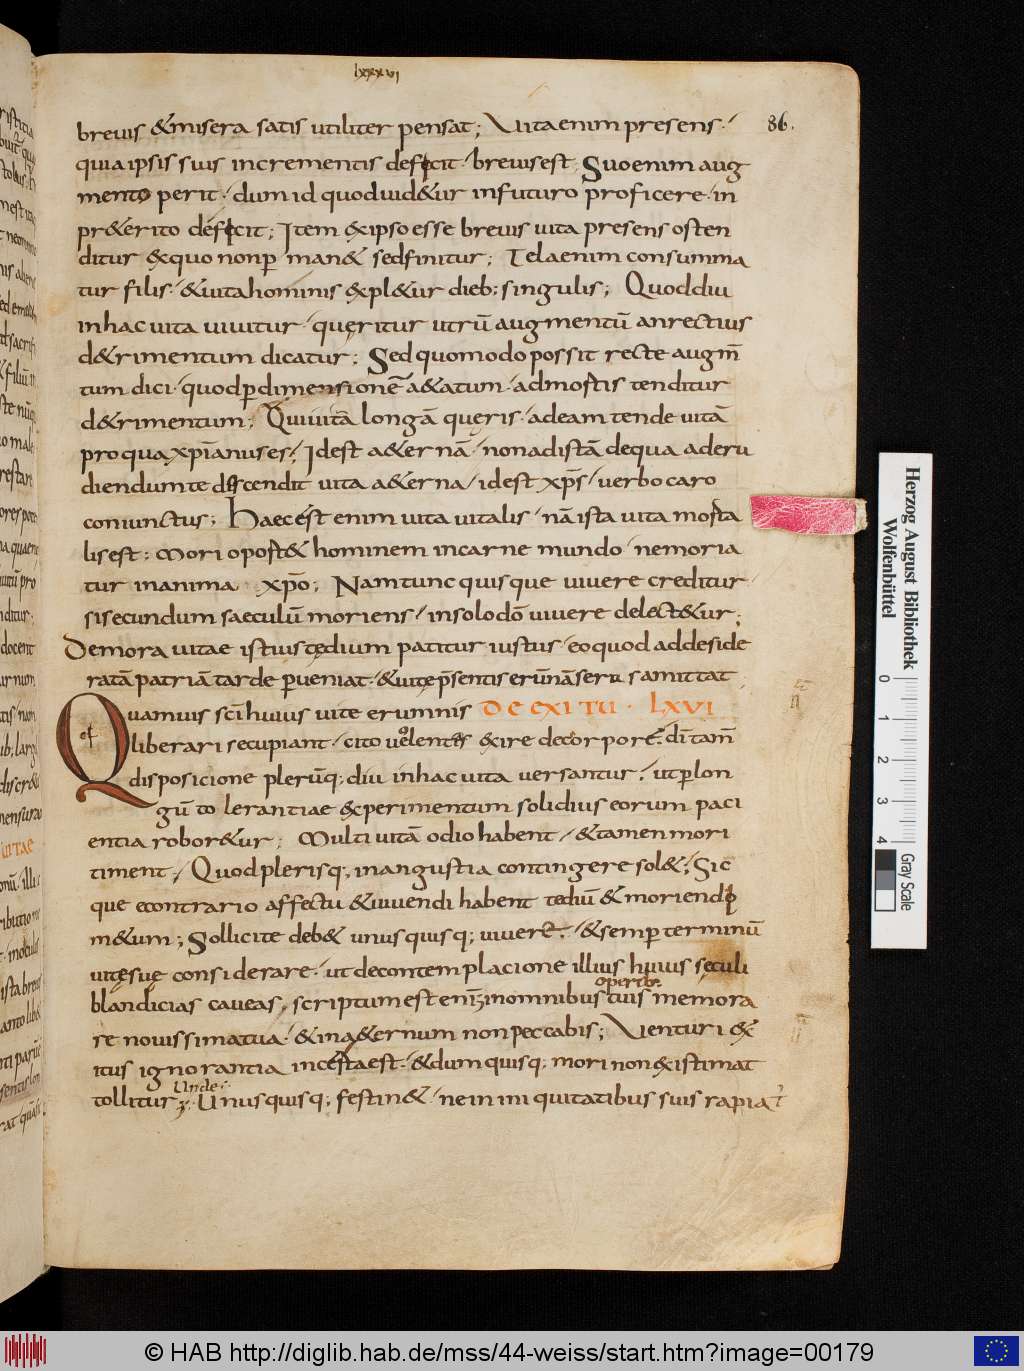 lxxxvi
86.
brevis & misera satis utiliter pensat; Vita enim presens·
quia ipsis suis incrementis deficit· brevis est; Suo enim aug
mento perit· dum id quod vid&ur in futuro proficere· in
pr&erito deficit; Item ex ipso esse brevis vita presens osten
ditur ex quo non p man& sed finitur; Tela enim consumma
tur filis· & vita hominis expl&ur dieb; singulis; Quod diu
in hac vita vivitur· quęritur utrū augmentū an rectius
d&rimentum dicatur; Sed quomodo possit recte augm̄
tum dici· quod p dimensionē a&atum· ad mortis tenditur
d&rimentum; Qui vitā longā queris· ad eam tende vitā
pro qua xp̄ianus es; Id est a&ernā· non ad istā de qua ad eru
diendum te descendit vita a&erna· id est xp̄s· verbo caro
coniunctus; Haec est enim vita vitalis· nā ista vita morta
lis est; Mori oport& hominem in carne mundo· ne moria
tur in anima xp̄o; Nam tunc quisque vivere creditur·
si secundum saeculū moriens· in solo dō vivere delect&ur;
De mora vitae istius tędium patitur iustus· eo quod ad deside
ratā patriā tarde pveniat· & vitę p̄sentis erūnā sero amittat
Quamvis sc̄i huius vite erumnis DE EXITU· LXVI
et
liberari se cupiant· cito volentes exire de corpore· dī tam̄
disposicione plerūq; diu in hac vita versantur· ut p lon
gū tolerantiae experimentum solidius eorum paci
entia robor&ur; Multi vitā odio habent· & tamen mori
timent· Quod plerisq; in angustia contingere sol&; Sic
que econtrario affectu & vivendi habent tediū & moriendi
m&um; Sollicite deb& unusquisq; vivere· & semp terminū
vitę suę considerare· ut de contemplacione illius huius sęculi
operib;
blandicias caveas, scriptum est enī; in omnibus tuis memora
re novissima tua· & in a&ernum non peccabis; Venturi ex
itus ignorantia incerta est· & dum quisq; mori non existimat
Unde·
tollitur; Unusquisq; festin&· ne in iniquitatibus suis rapiat᷑
Herzog August Bibliothek
Wolfenbüttel
0 1 2 3 4
Gray Scale
© HAB http://diglib.hab.de/mss/44-weiss/start.htm?image=00179